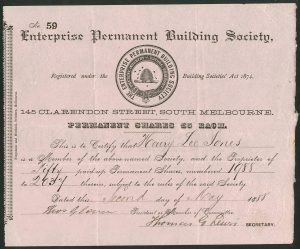 No. 59
Enterprise Permanent Building Society,
Registered under the Building Societies' Act 1874.
THE ENTERPRISE PERMANENT BUILDING SOCIETY
145 CLARENDON STREET, SOUTH MELBOURNE.
PERMANENT SHARES £5 EACH.
This is to Certify that Henry Lee Jones
is a Member of the above-named Society, and the Proprietor of
Fifty paid-up Permanent Shares, numbered 1988
to 2037 therein, subject to the rules of the said Society.
Dated this Second day of May 1888
President
Member of Committee
Thomas
SECRETARY.